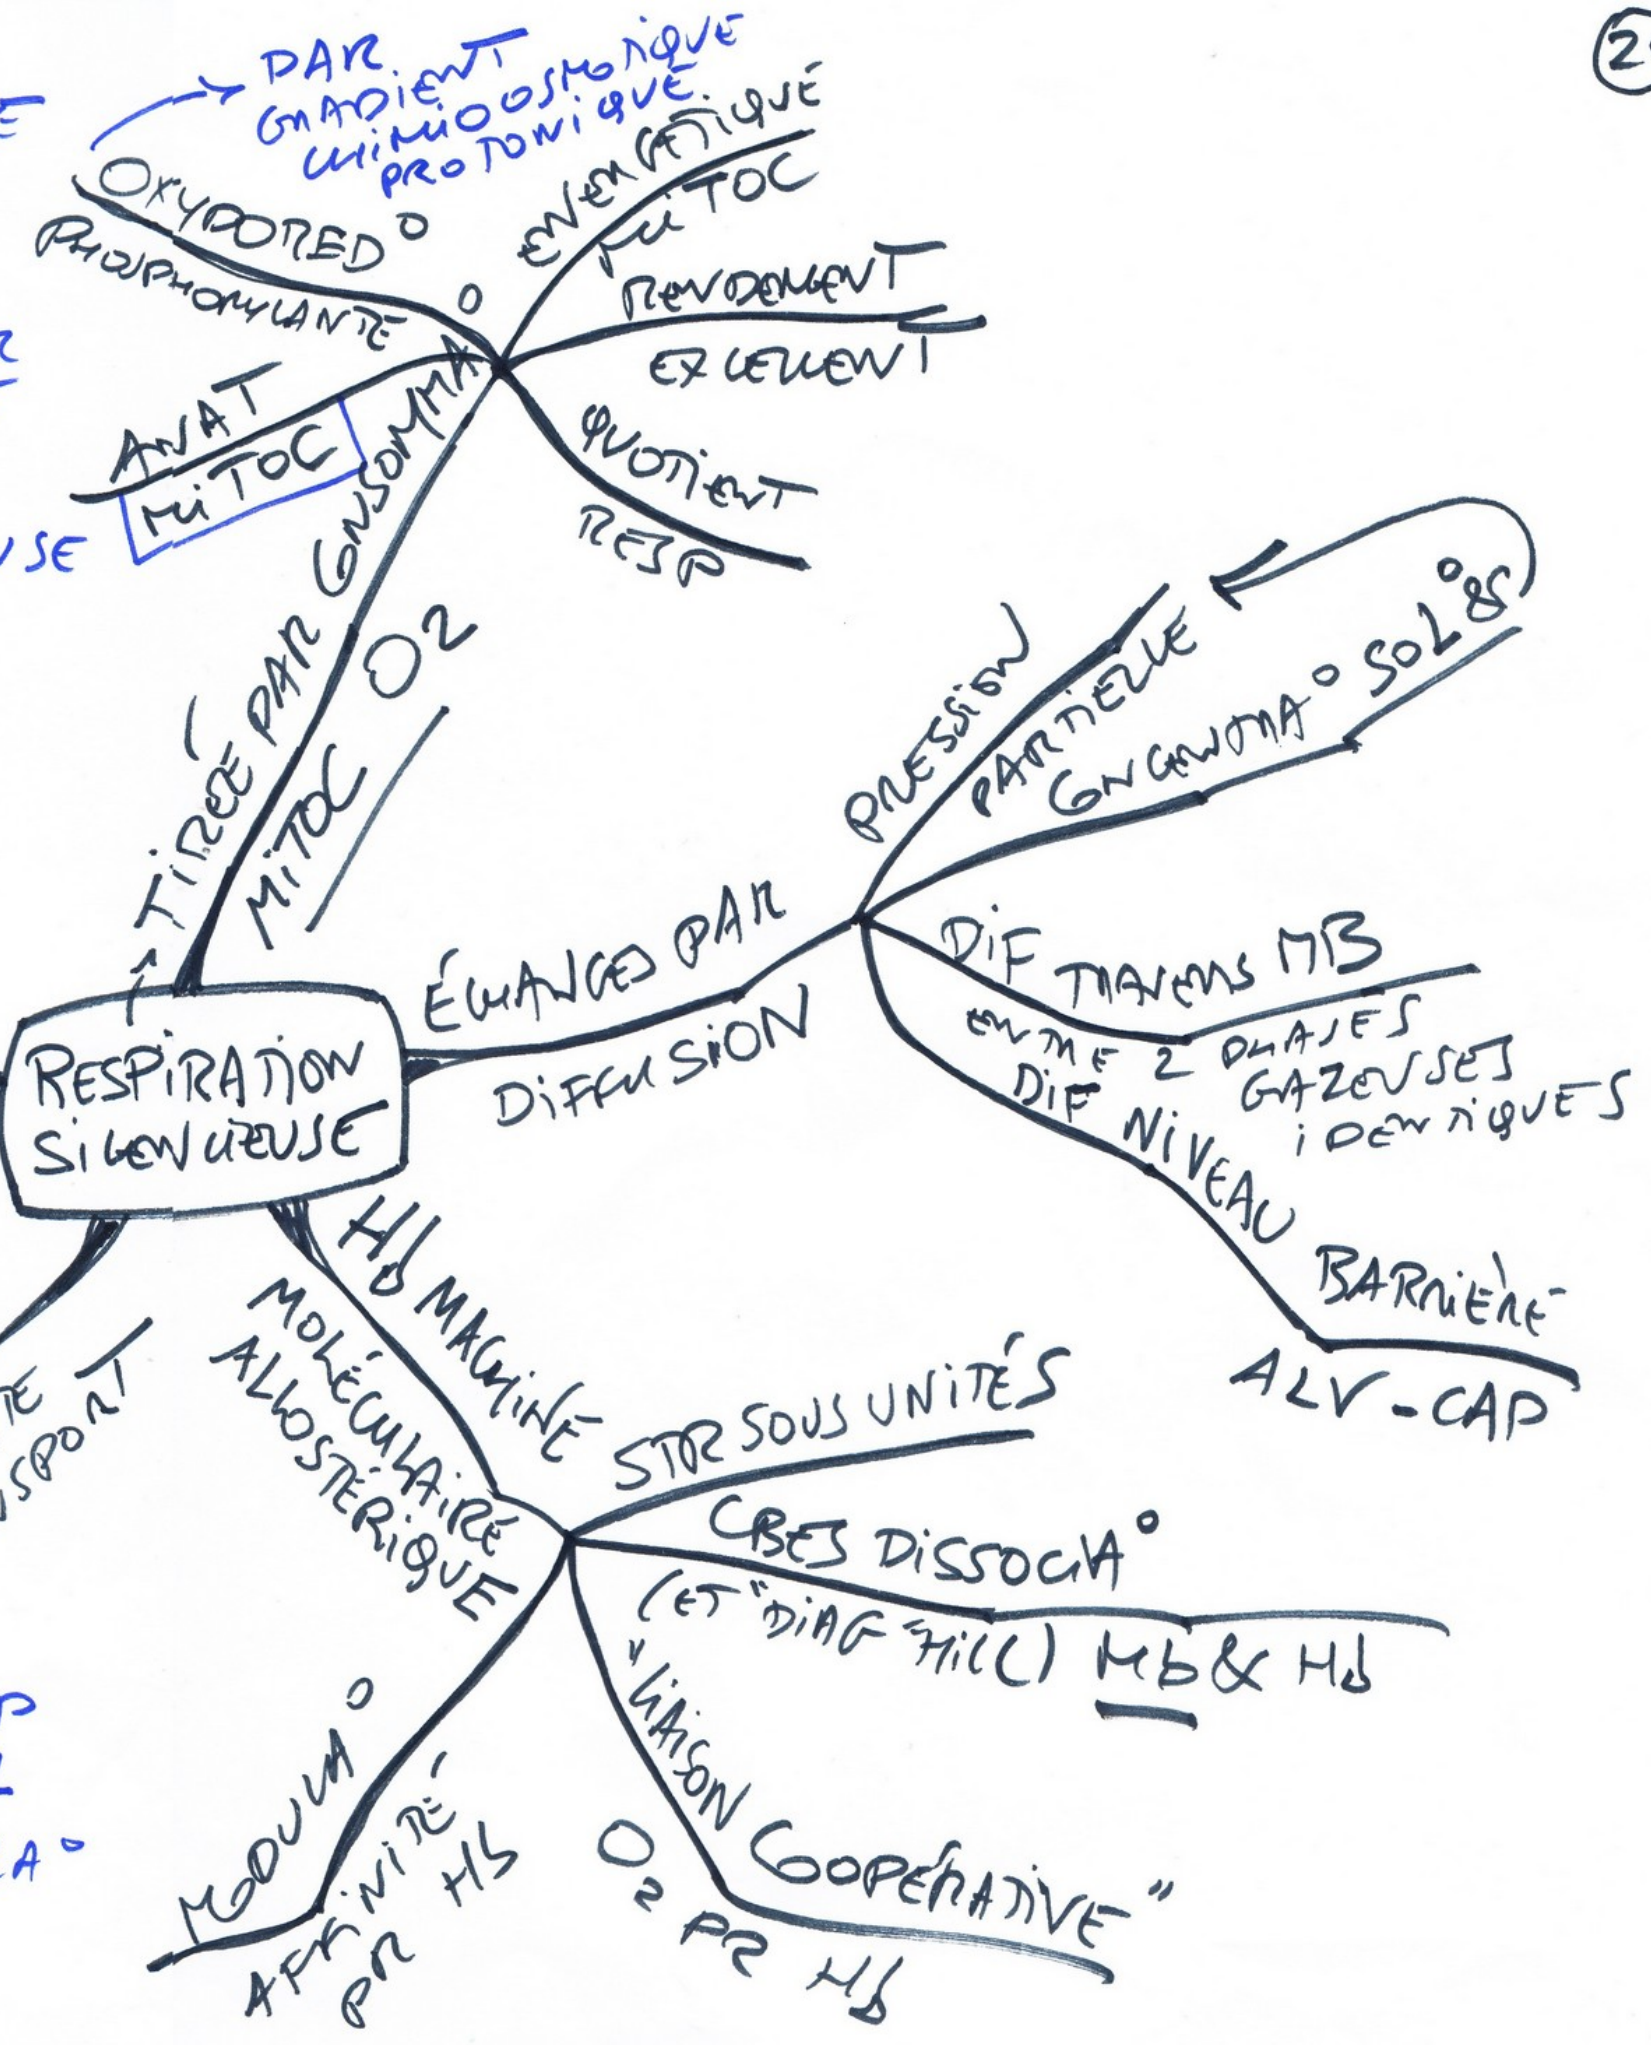 2
DAR
GRADIENT
CHIMIOOSMOTIQUE
PROTONIQUE
E
OXYDORED°
PHOSPHORYLANTE
ENERGÉTIQUE
MITOC
RENDEMENT
EXCELLENT
QUOTIENT
RESP
ANAT
MITOC
R
USE
TIRÉE PAR CONSOMMA°
O2
MITOC
RESPIRATION
SILENCIEUSE
ÉCHANGES PAR
DIFFUSION
PRESSION
PARTIELLE
CONCENTRA° SOL° &
DIF TRAVERS MB
ENTRE 2 PHASES
GAZEUSES
IDENTIQUES
DIF NIVEAU BARRIÈRE
ALV-CAP
Hb MACHINE
MOLÉCULAIRE
ALLOSTÉRIQUE
STR SOUS UNITÉS
CBES DISSOCIA°
(ET "DIAG" HILL) Mb & Hb
"LIAISON COOPÉRATIVE"
O2 PR Hb
MODULA°
AFFINITÉ
PR Hb
TE
SPORT
A°